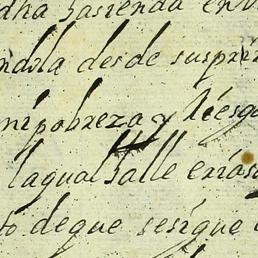 dha hasienda en
ndola desde suspri
mi pobreza y Riesgo
la qual halle eriasa
to de que sesigue